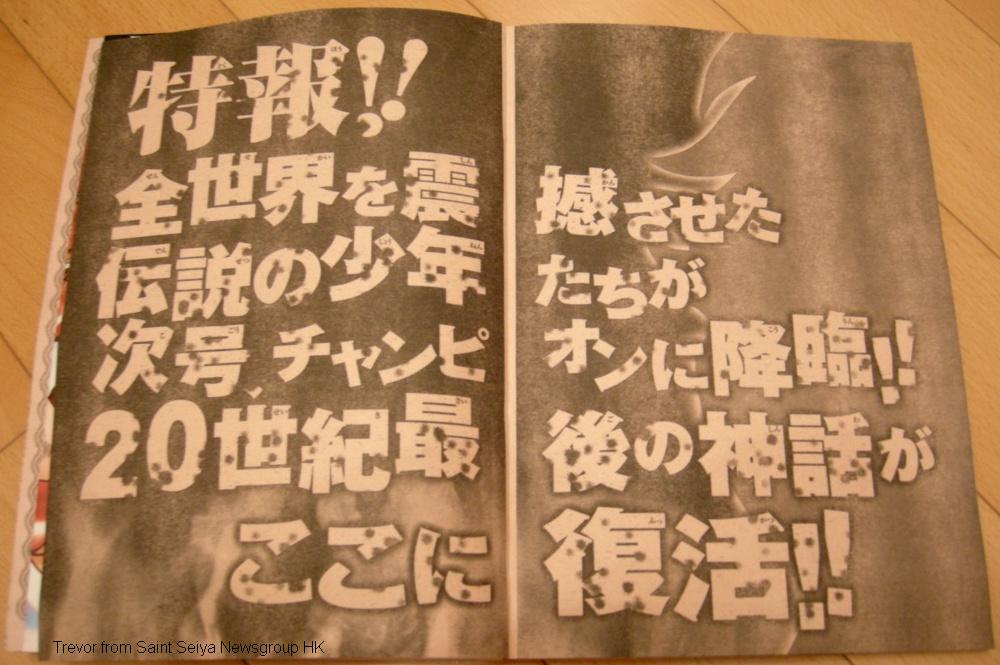 特報!!
全世界を震撼させた
伝説の少年たちが
次号、チャンピオンに降臨!!
20世紀最後の神話が
ここに復活!!
Trevor from Saint Seiya Newsgroup HK